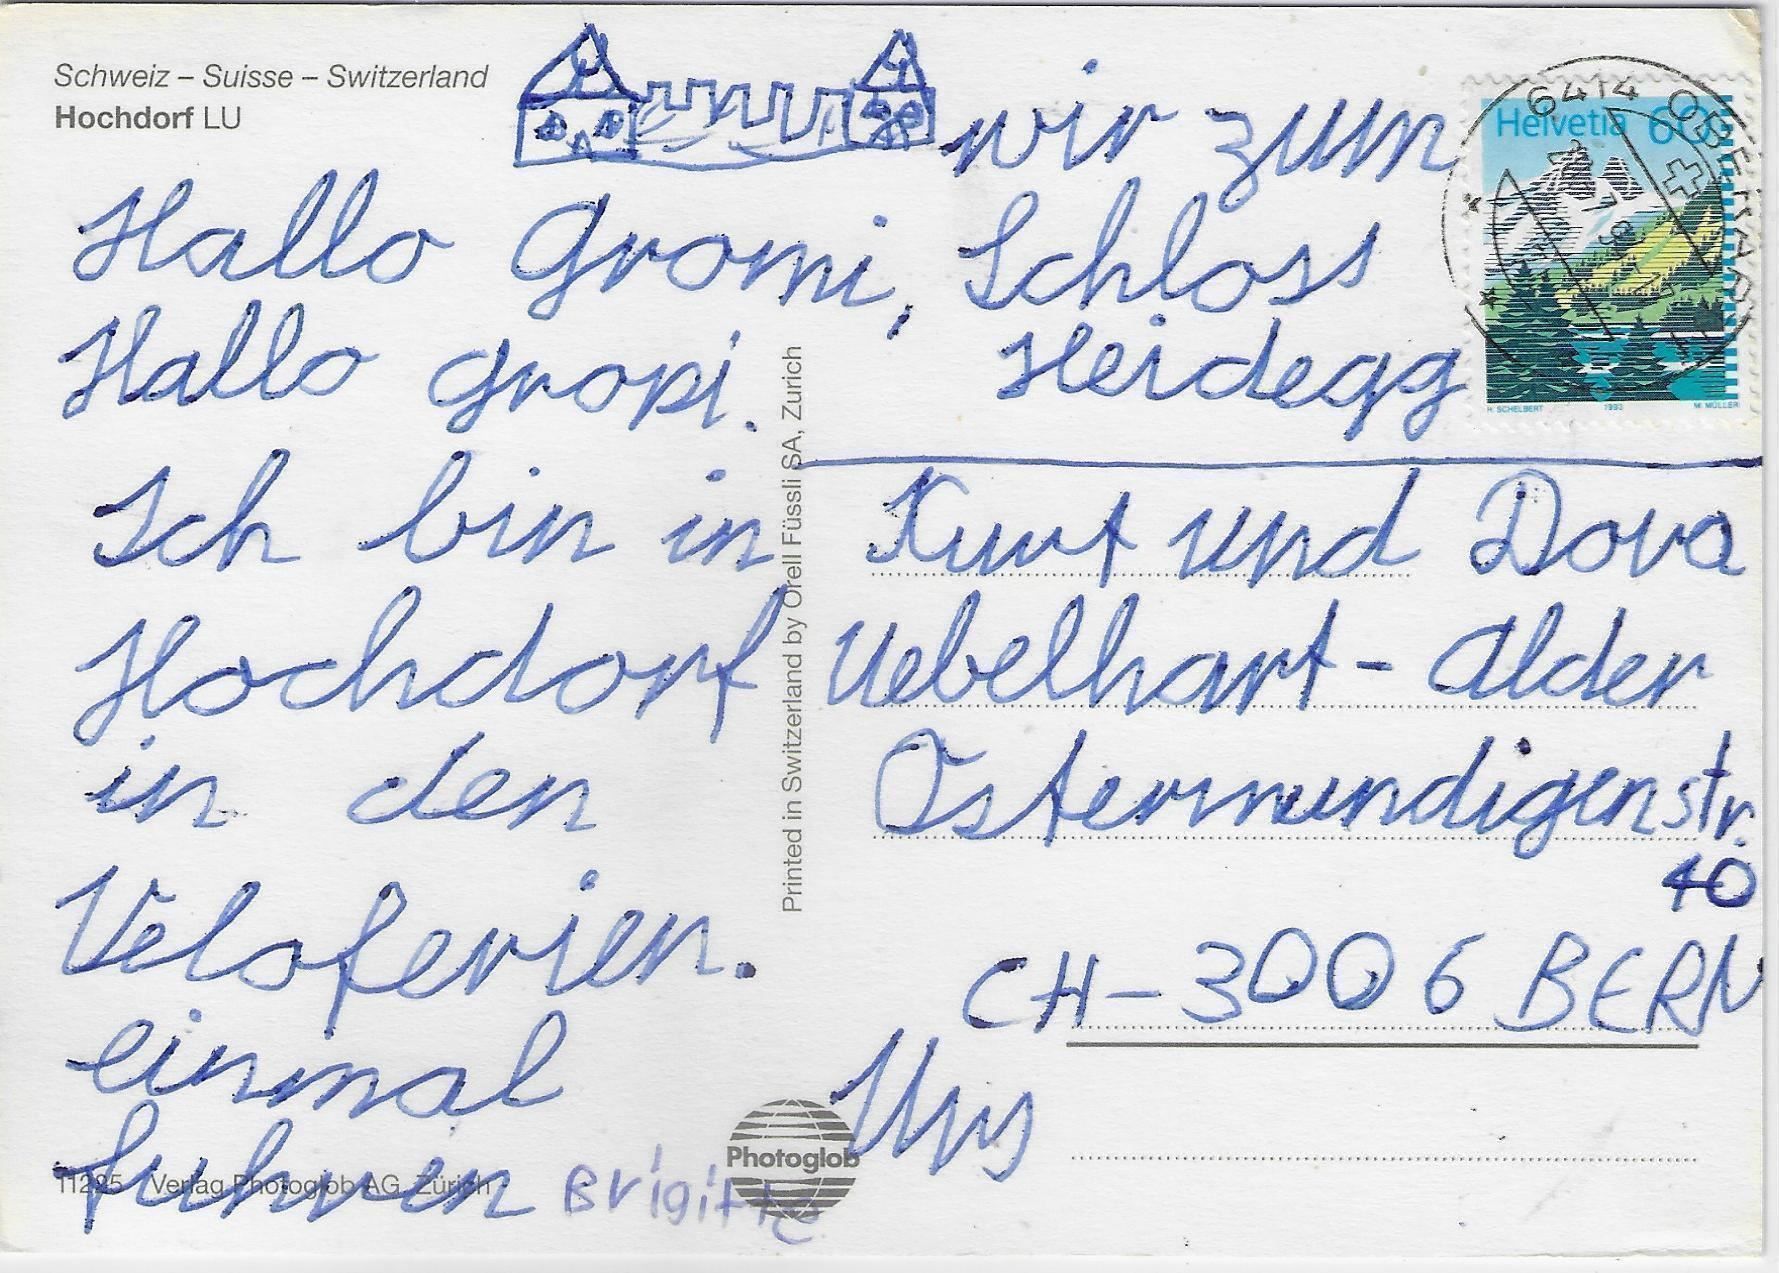 Schweiz – Suisse – Switzerland
Hochdorf LU
Hallo Gromi,
Hallo Gropi.
Ich bin in
Hochdorf
in den
Veloferien.
einmal
fuhren
wir zum
Schloss
Heidegg
Urs
Brigitte
Kurt und Dora
Uebelhart-Alder
Ostermundigenstr.
40
CH-3006 BERN
Helvetia 60
H. SCHELBERT 1993 M. MÜLLER
6414 OBERAR
Printed in Switzerland by Orell Füssli SA, Zurich
11225 Verlag Photoglob AG, Zürich
Photoglob